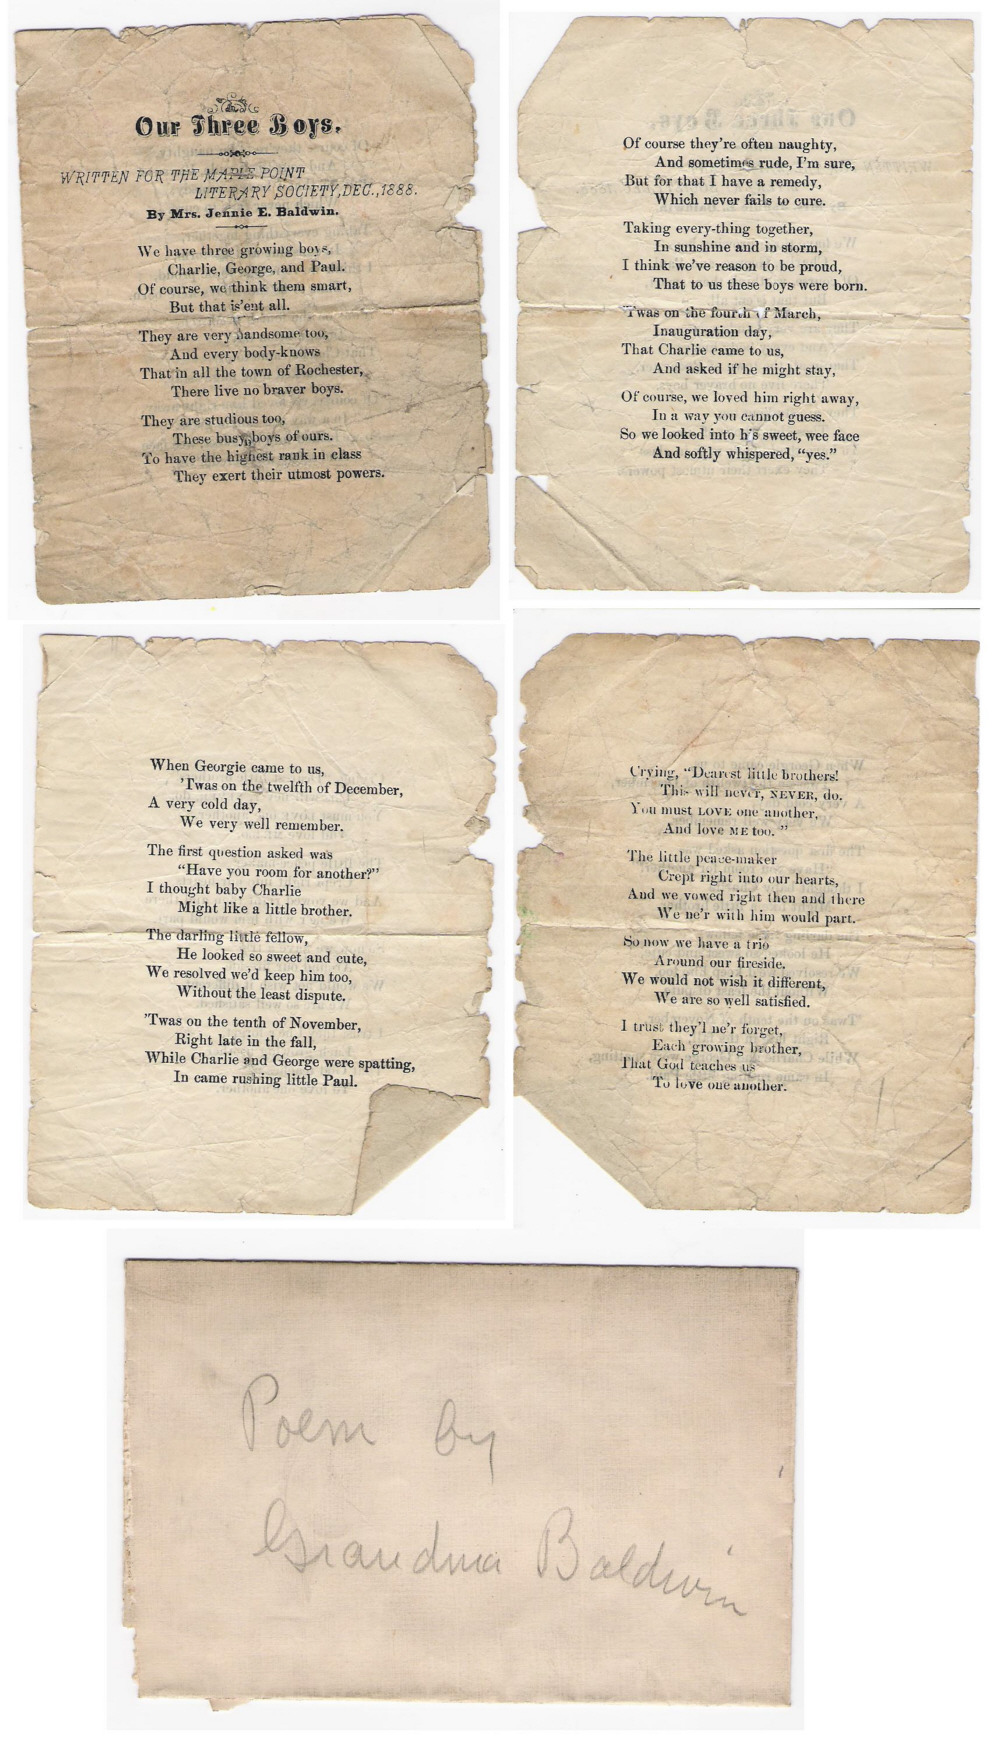 Our Three Boys.
WRITTEN FOR THE MAPLE POINT
LITERARY SOCIETY, DEC., 1888.
By Mrs. Jennie E. Baldwin.
We have three growing boys,
Charlie, George, and Paul.
Of course, we think them smart,
But that is'ent all.
They are very handsome too,
And every body-knows
That in all the town of Rochester,
There live no braver boys.
They are studious too,
These busy, boys of ours.
To have the highest rank in class
They exert their utmost powers.
Of course they're often naughty,
And sometimes rude, I'm sure,
But for that I have a remedy,
Which never fails to cure.
Taking every-thing together,
In sunshine and in storm,
I think we've reason to be proud,
That to us these boys were born.
'Twas on the fourth of March,
Inauguration day,
That Charlie came to us,
And asked if he might stay,
Of course, we loved him right away,
In a way you cannot guess.
So we looked into his sweet, wee face
And softly whispered, "yes."
When Georgie came to us,
'Twas on the twelfth of December,
A very cold day,
We very well remember.
The first question asked was
"Have you room for another?"
I thought baby Charlie
Might like a little brother.
The darling little fellow,
He looked so sweet and cute,
We resolved we'd keep him too,
Without the least dispute.
'Twas on the tenth of November,
Right late in the fall,
While Charlie and George were spatting,
In came rushing little Paul.
Crying, "Dearest little brothers!
This will never, NEVER, do.
You must LOVE one another,
And love ME too. "
The little peace-maker
Crept right into our hearts,
And we vowed right then and there
We ne'r with him would part.
So now we have a trio
Around our fireside.
We would not wish it different,
We are so well satisfied.
I trust they'l ne'r forget,
Each growing brother,
That God teaches us
To love one another.
Poem by
Grandma Baldwin